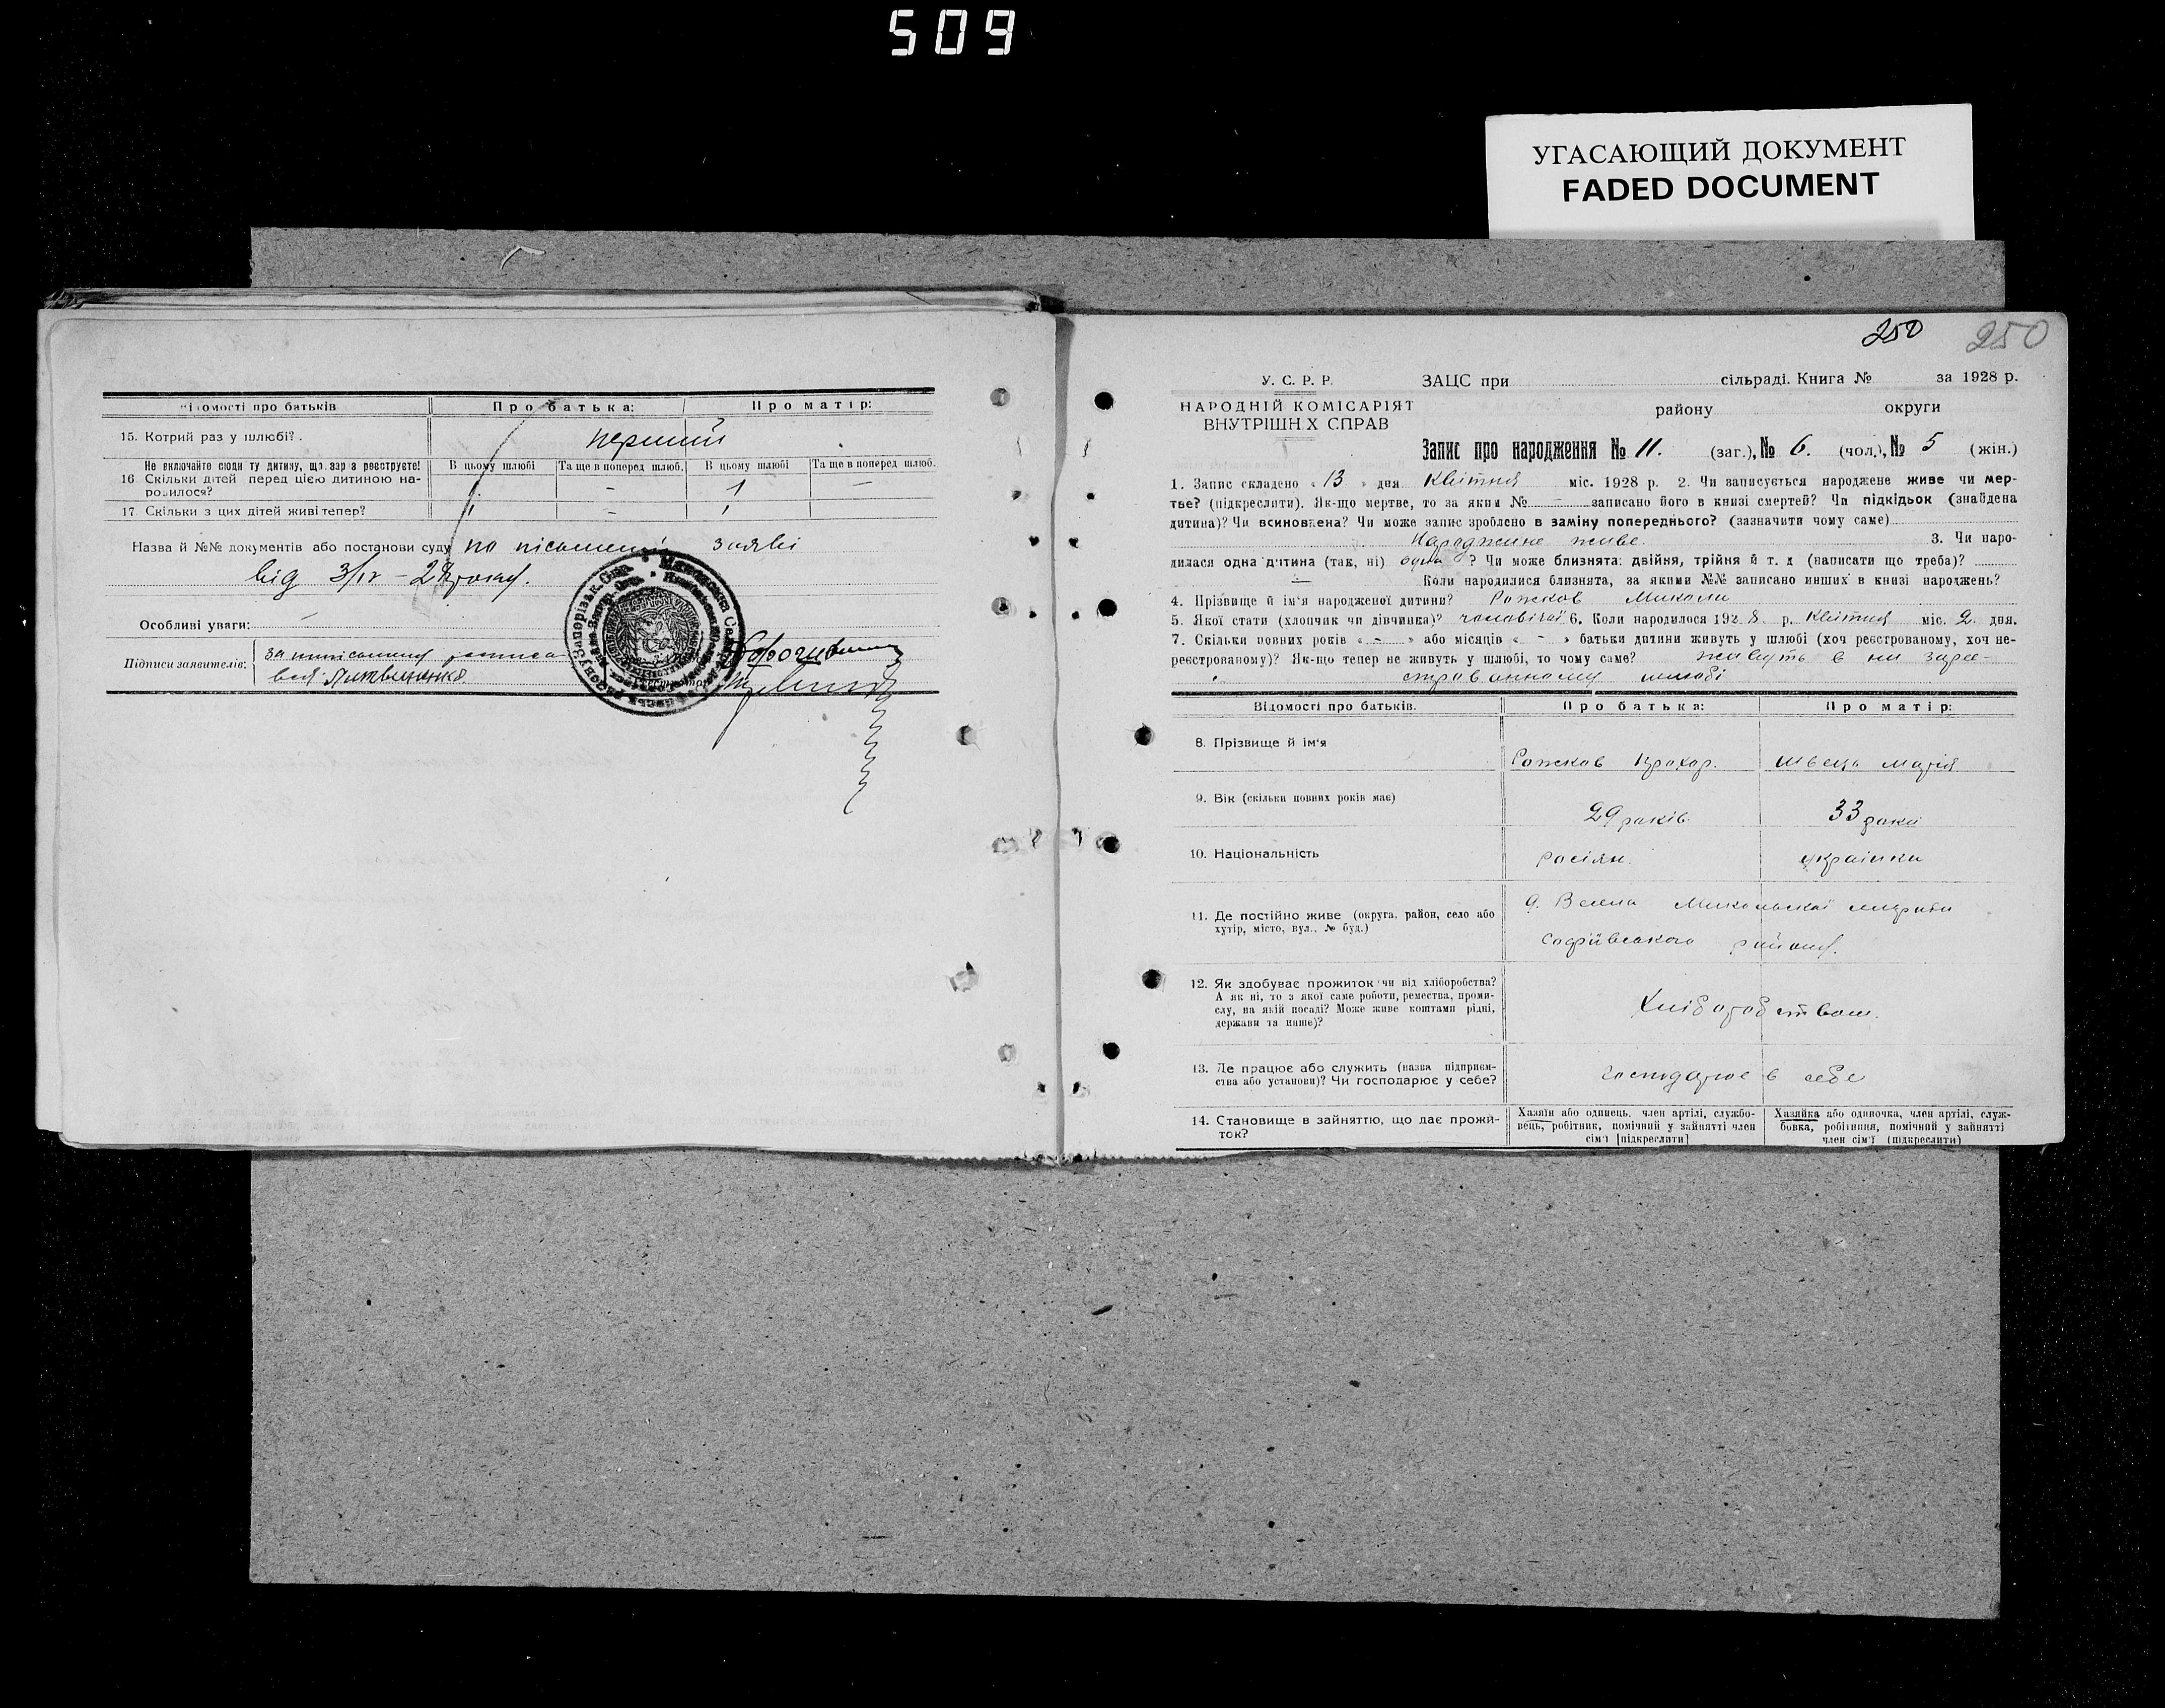 509
УГАСАЮЩИЙ ДОКУМЕНТ
FADED DOCUMENT
Відомості про батьків
Про батька:
Про матір:
15. Котрий раз у шлюбі?.
перший
Не включайте сюди ту дитину, що зараз реєструєте!
16 Скільки дітей перед цією дитиною народилося?
В цьому шлюбі
Та ще в поперед шлюб.
В цьому шлюбі
Та ще в поперед шлюб.
1 - 1 -
17 Скільки з цих дітей живі тепер?
1 - 1
Назва й №№ документів або постанови суду по пісьменній заяві
від 3/IV - 28 року.
Особливі уваги: —
Підписи заявителів:
250 250
У. С. Р. Р.
НАРОДНІЙ КОМІСАРІЯТ
ВНУТРІШНІХ СПРАВ
ЗАЦС при сільраді. Книга № за 1928 р.
району округи
Запис про народження № 11. (заг.), № 6. (чол.), № 5 (жін.)
1. Запис складено « 13 » дня Квітня міс. 1928 р. 2. Чи записується народжене живе чи мер-
тве? (підкреслити). Як-що мертве, то за яким № — записано його в книзі смертей? Чи підкідьок (знайдена
дитина)? Чи всиновлена? Чи може запис зроблено в заміну попереднього? (зазначити чому саме)
Народжене живе. 3. Чи наро-
дилася одна дитина (так, ні) одна ? Чи може близнята: двійня, трійня й т. д (написати що треба)?
— Коли народилися близнята, за якими №№ записано инших в книзі народжень?
4. Прізвище й ім'я народженої дитини? Рожков Микола
5. Якої стати (хлопчик чи дівчинка)? чоловічої 6. Коли народилося 192 8 р. Квітня міс. 2 дня.
7. Скільки повних років « - » або місяців « - » батьки дитини живуть у шлюбі (хоч реєстрованому, хоч не-
реєстрованому)? Як-що тепер не живуть у шлюбі, то чому саме? живуть в ни зарее-
строванному шлюбі
Відомості про батьків.
Про батька:
Про матір:
8. Прізвище й ім'я
Рожков Прохор.
Швець Марія
9. Вік (скільки повних років має)
29 років.
33 роки
10. Національність
росіян.
українка
11. Де постійно живе (округа, район, село або
хутір, місто, вул., № буд.)
Микольської сільради
Софіївського району.
12. Як здобуває прожиток чи від хліборобства?
А як ні, то з якої саме роботи, ремества, проми-
слу, на якій посаді? Може живе коштами рідні,
держави та инше)?
Хліборобством.
13. Де працює або служить (назва підприєм-
ства або установи)? Чи господарює у себе?
господарює в себе
14. Становище в зайняттю, що дає прожи-
ток?
Хазяїн або одинець, член артілі, службо-
вець, робітник, помічний у зайнятті член
сім'ї [підкреслити]
Хазяйка або одиночка, член артілі, служ-
бовка, робітниця, помічний у зайнятті
член сім'ї (підкреслити)